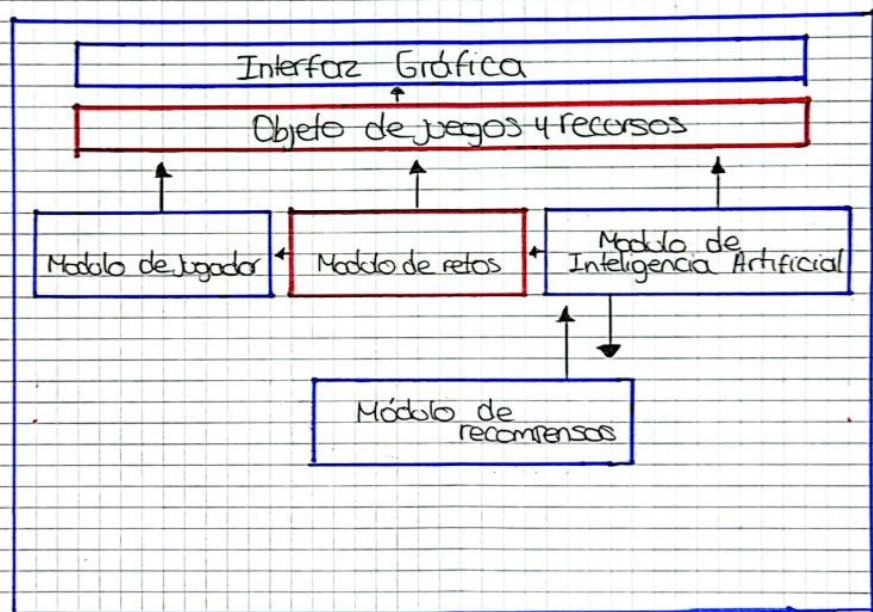 Interfaz Gráfica
Objeto de juegos y recursos
Modulo de Jugador
Modulo de retos
Modulo de
Inteligencia Artificial
Módulo de
recomrensas